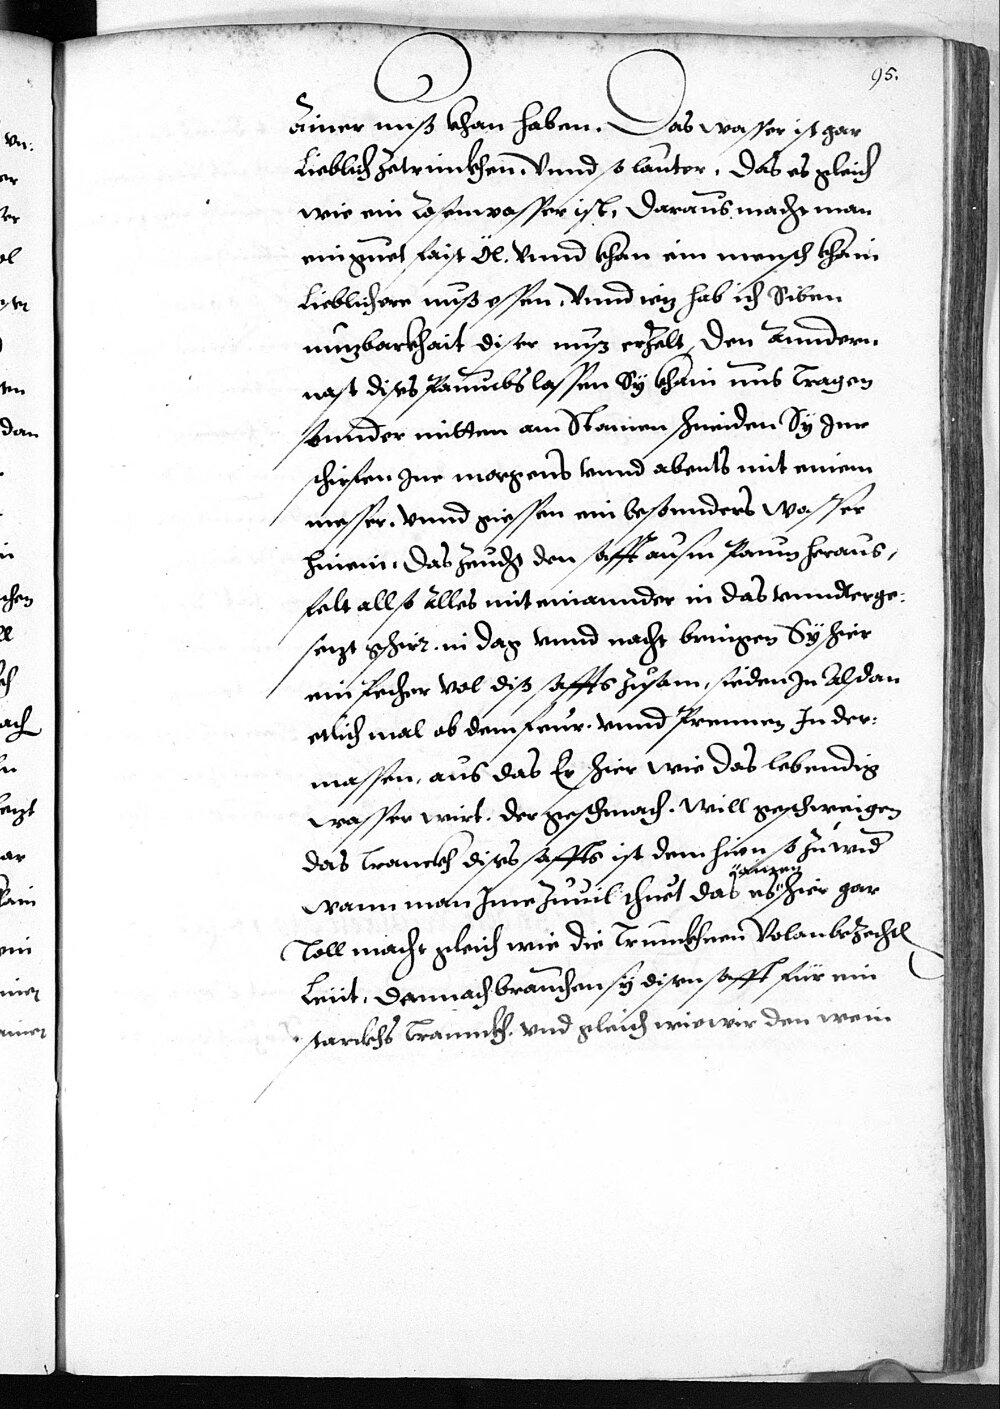 95.
Ainer nuß khan haben. Das wasser ist gar
Lieblich zetrinckhen, Vnnd so lauter, das es gleich
wie ein Rosenwasser ist, daraus macht man
ein guet faist Öl. Vnnd khan ein mensch khain
Lieblichere nuß essen, Vnnd iez hab ich Siben
nuzbarkhait diser nuß erzelt, Den Anndern
nast dises Paumbs lassen Sÿ khain nus Tragen
sonnder mitten am Stamen schneiden Sÿ Ine
Ine morgens vnnd abents mit einem
messer, vnnd giessen ein besonnders wasser
hinein, das zeucht den safft ausm Paum heraus,
felt allso Alles mit einannder in das vnnderge-
sezt gschir. in dag vnnd nacht bringen Sÿ schier
ein Becher vol diß saffts zusam, sieden In Alsdan
etlich mal ob dem feur. vnnd Prennen In der-
massen, aus das Er schier wie das lebendig
wasser wirt. der geschmach. will geschweigen
das Tranckh dises saffts ist dem hirn so zuwid
wann man Ime zuuil thuet das es ainen schier gar
Toll macht gleich wie die Trunckhnen Volanbezecht
Leüt, dannach brauchen sÿ disen safft für ein
starckhs Tranckh. vnd gleich wie wir den wein